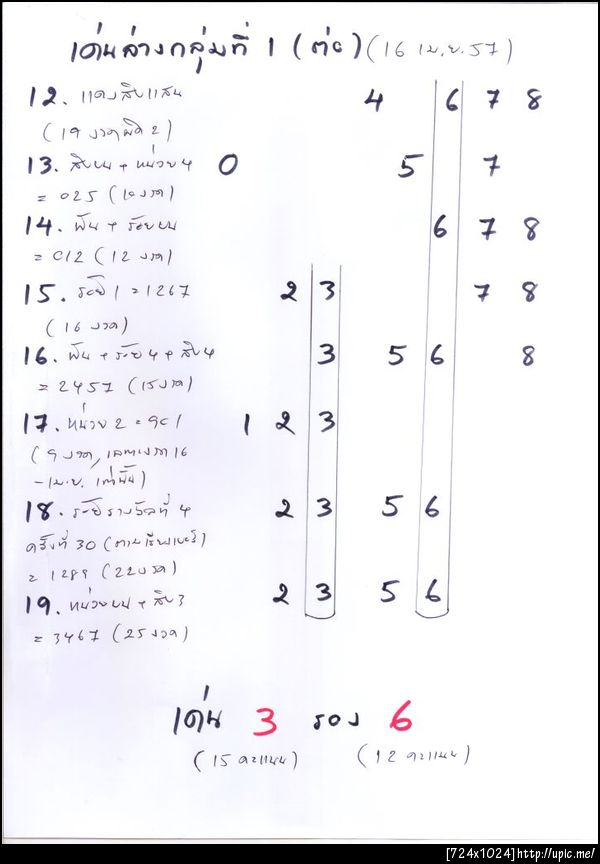 เด่นล่างกลุ่มที่ 1 (ต่อ) (16 เม.ย. 57)
12. แดงสิบแสน 4 6 7 8
(19 งวดผิด 2)
13. สิบบน + หน่วย 4 0 5 7
= 025 (10 งวด)
14. พัน + ร้อยบน 6 7 8
= 012 (12 งวด)
15. ร้อย 1 = 1267 2 3 7 8
(16 งวด)
16. พัน + ร้อย 4 + สิบ 4 3 5 6 8
= 2457 (15 งวด)
17. หน่วย 2 = 901 1 2 3
(9 งวด, เฉพาะงวด 16
- เม.ย. เท่านั้น)
18. ร้อยรางวัลที่ 4 2 3 5 6
ครั้งที่ 30 (ตามเรียงเบอร์)
= 1289 (22 งวด)
19. หน่วยบน + สิบ 3 2 3 5 6
= 3467 (25 งวด)
เด่น 3 รอง 6
(15 คะแนน) (12 คะแนน)
[724x1024]http://upic.me/